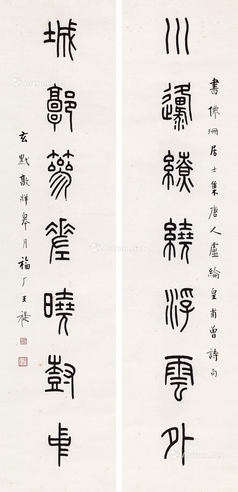 書珊居士集唐人盧綸皇甫曾詩句
川邍繚繞浮雲外
城郭篸差曉尌中
玄黓敦牂皋月福厂王禔